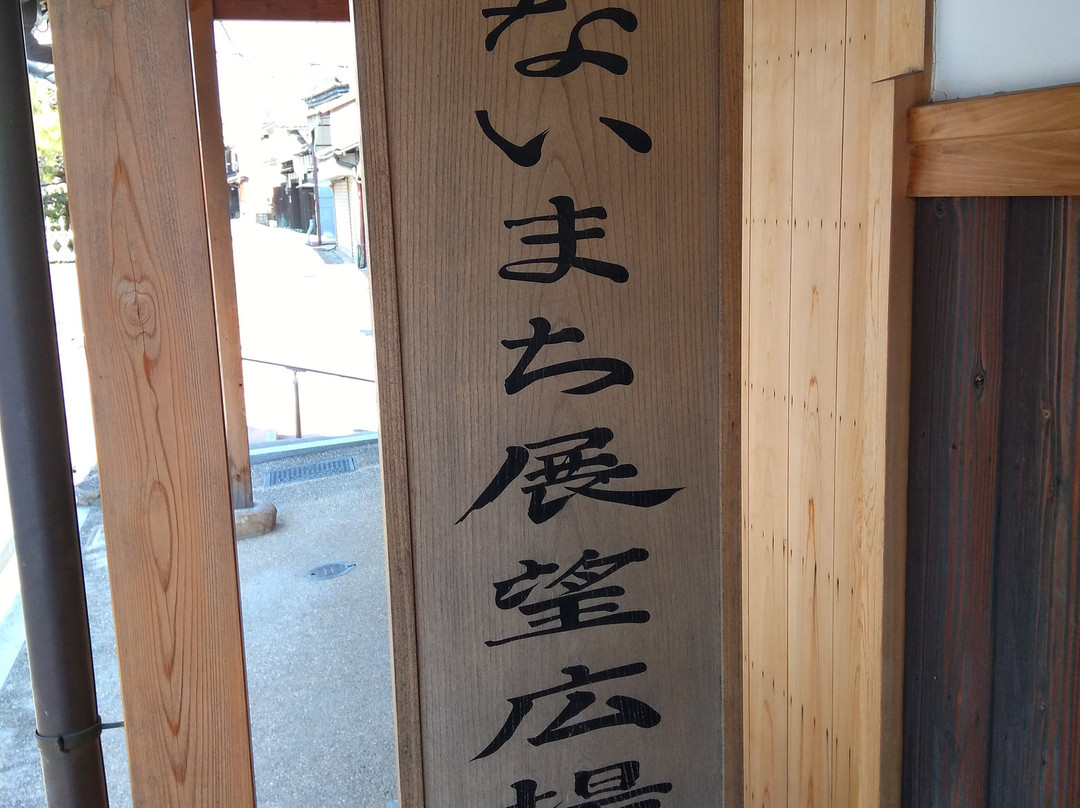 ないまち展望広場